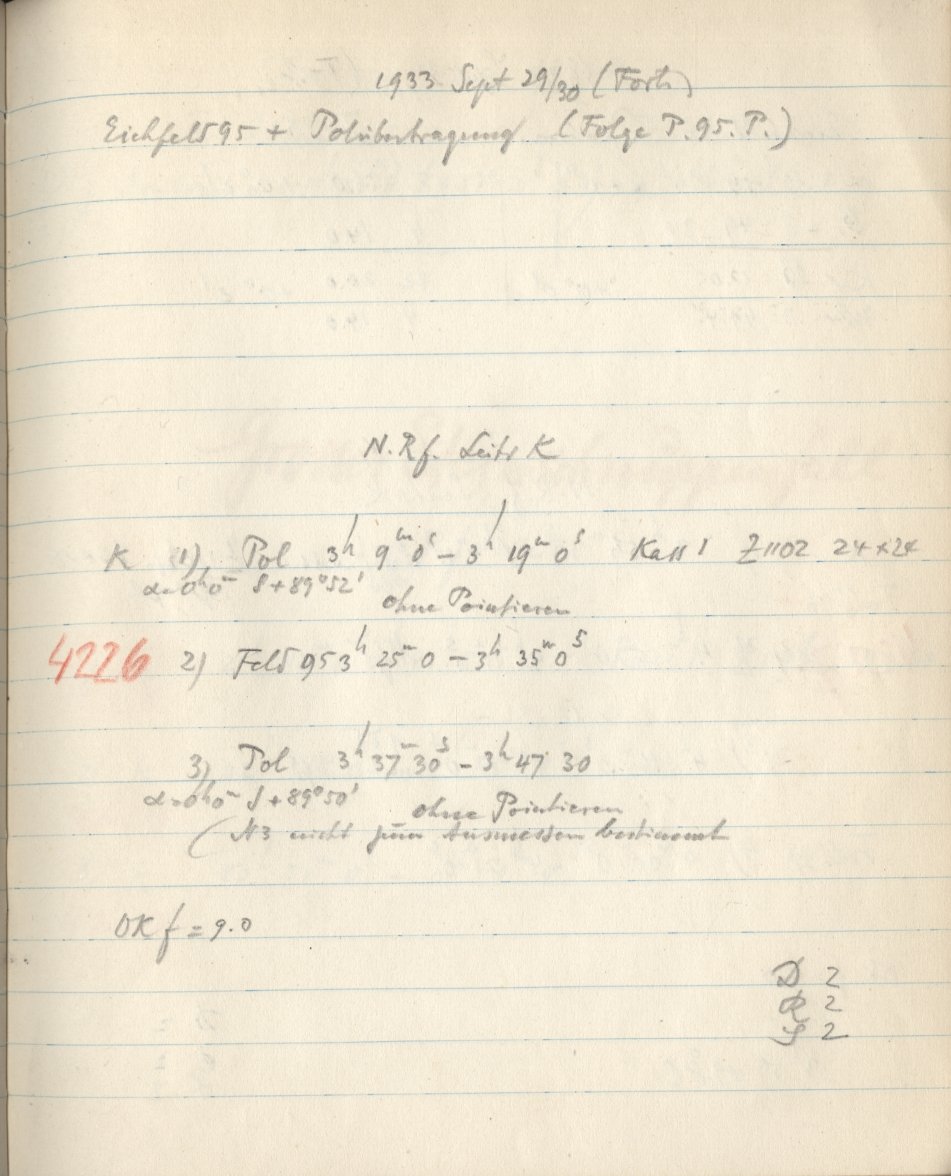 1933 Sept 29/30 (Forts)
Eichfeld 95 + Polübertragung (Folge P. 95. P.)
N. Rf. Leitr K
K 1) Pol 3h 9m 0s – 3h 19m 0s Kass 1 Z1102 24x24
α=0h0m δ+89°52'
ohne Pointieren
4226 2) Feld 95 3h 25m 0 – 3h 35m 0s
3) Pol 3h 37m 30s – 3h 47 30
α=0h0m δ+89°50'
ohne Pointieren
(N3 nicht zum Ausmessen bestimmt
OK f = 9.0
D 2
R 2
S 2